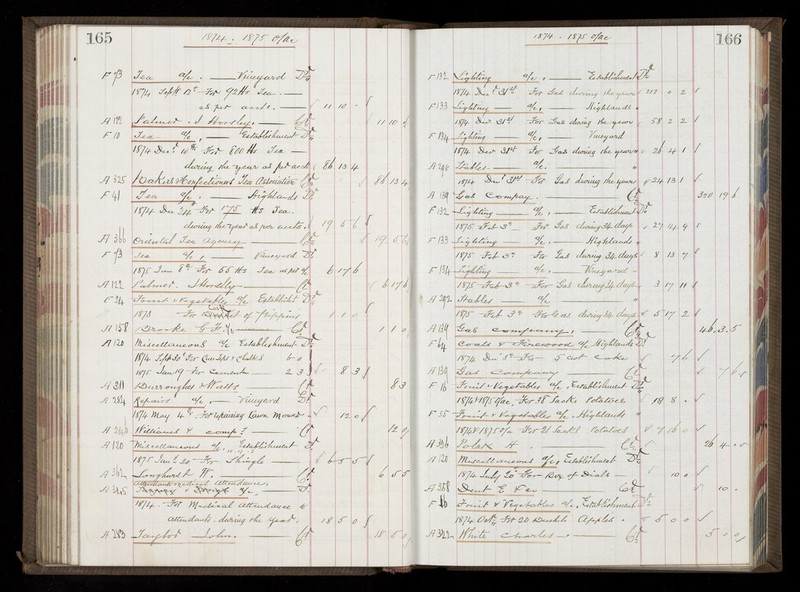 165
1874 - 1875 o/ac
F 73 Tea a/c. Vineyard Dr
1874 Sept 12 For 92 lbs Tea
as per accts. 11 10 -
A 122 Palmer. J Horsley. Cr 11 10
F 10 Tea a/c, Establishment Dr
1874 Dec 10th For 800 lbs Tea
during the year as per acct 86 13 4
A 325 Confectioners Tea Association Cr 86 13 4
F 41 Tea a/c. Highlands Dr
1874 Dec 24 For 175 lbs Tea.
during the year as per accts. 19 5
A 366 Oriental Tea Agency Cr 19 5
F 73 Tea a/c, Vineyard Dr
1875 Jan 8th For 55 lbs Tea as per a/c 6 17 6
A 122 Palmer. J Horsley Cr 6 17 6
F 24 Fruit & Vegetables a/c Establisht Dr
1873 For of pippins 1 1 0
A 158 Brooke G. F. Cr 1 1 0
A 120 Miscellaneous a/c Establishment Dr
1874 Sept 30 For & Chalks 6 0
1875 Jan 19 For Cement 2 3 8 3
A 311 Burroughs & Watts Cr 8 3
A 284 Repairs a/c, Vineyard Dr
1874 May 4th For repairing Lawn Mower 12 0
Williams & Comp Cr 12 0
A 120 Miscellaneous a/c, Establishment Dr
1875 Jan 30 For Shingle 6 5 5
A 362 Longhurst W Cr 6 5 5
Attendants Medical Attendance
a/c. Dr
1874 For Medical Attendance
Attendants during the year. 18 5 0
A 283 Taylor John. Cr 18 5 0
1874 - 1875 o/ac
166
F 132 Lighting a/c, Establishment Dr
1874 Dec 31st For Gas during the year 212 0 2
F 133 Lighting a/c, Highlands "
1874 Dec 31st For Gas during the year 58 2 2
F 134 Lighting a/c, Vineyard
1874 Dec 31st For Gas during the year 26 4 1
Stables a/c. "
1874 Dec 31st For Gas during the year 24 13 1
A 139 Gas Company. Cr 320 19 6
F 132 Lighting a/c, Establishment Dr
1875 Feb 3rd For Gas during 34 days 27 14 9
F 133 Lighting a/c. Highlands "
1875 Feb 3rd For Gas during 34 days 8 13 7
F 134 Lighting a/c. Vineyard
1875 Feb 3rd For Gas during 34 days 3 17 11
A 292 Stables a/c "
1875 Feb 3rd For Gas during 34 days 5 17 2
A 139 Gas Company. Cr 46.3.5
F 64 Coals & Firewood a/c Highlands Dr
1874 Dec 1st For 5 cwt Coke 7 6
A 139 Gas Company Cr 7 6
F 16 Fruit & Vegetables a/c. Establishment Dr
1874 & 1875 o/ac. For 38 Sacks Potatoes 18 8 -
F 55 Fruit & Vegetables a/c. Highlands "
1874 & 1875 o/c For 21 Sacks Potatoes 7 16 0
A 396 H Cr 26 4 . 0
A 120 Miscellaneous a/c, Establishment Dr
1874 July 20 For Box of Dials 10 0
A 358 Dent E & Co Cr 10 -
F 16 Fruit & Vegetables a/c. Establishment Dr
1874 Oct For 20 Bushels Apples. 5 0 0
A 322 White Charles Cr 5 0 0